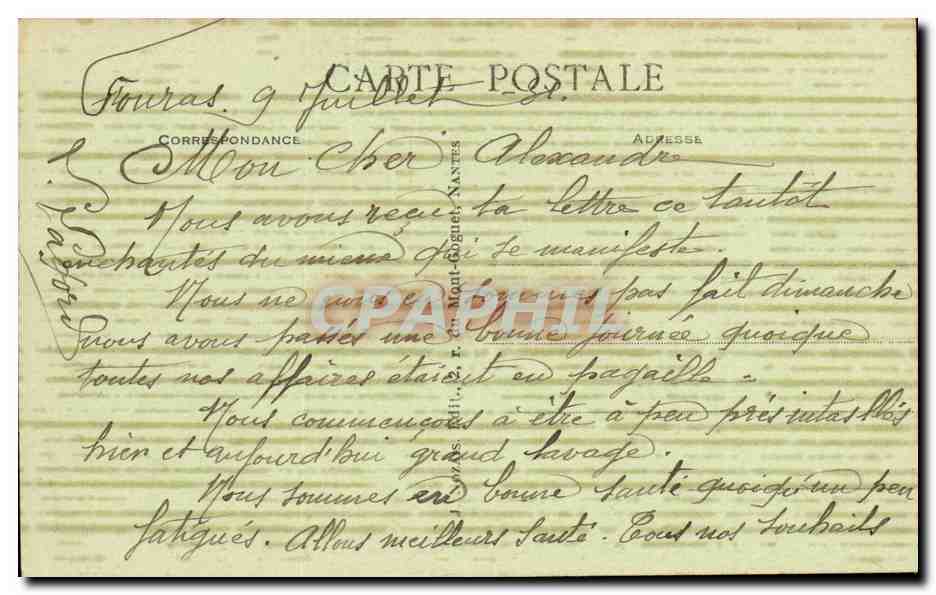 CARTE POSTALE
Fouras. 9 Juillet 31.
CORRESPONDANCE ADRESSE
Mon cher Alexandre
Nous avons reçu ta lettre ce tantôt
enchantés du mieux qui se manifeste.
Nous ne nous en sommes pas fait dimanche
nous avons passés une bonne journée quoique
toutes nos affaires étaient en pagaille.
Nous commençons à être à peu près installés
hier et aujourd'hui grand lavage.
Nous sommes en bonne santé quoiqu'un peu
fatigués. Allons meilleurs santé. Tous nos souhaits
édit., 2, r. du Mont-Goguet, NANTES
CPAPHIL